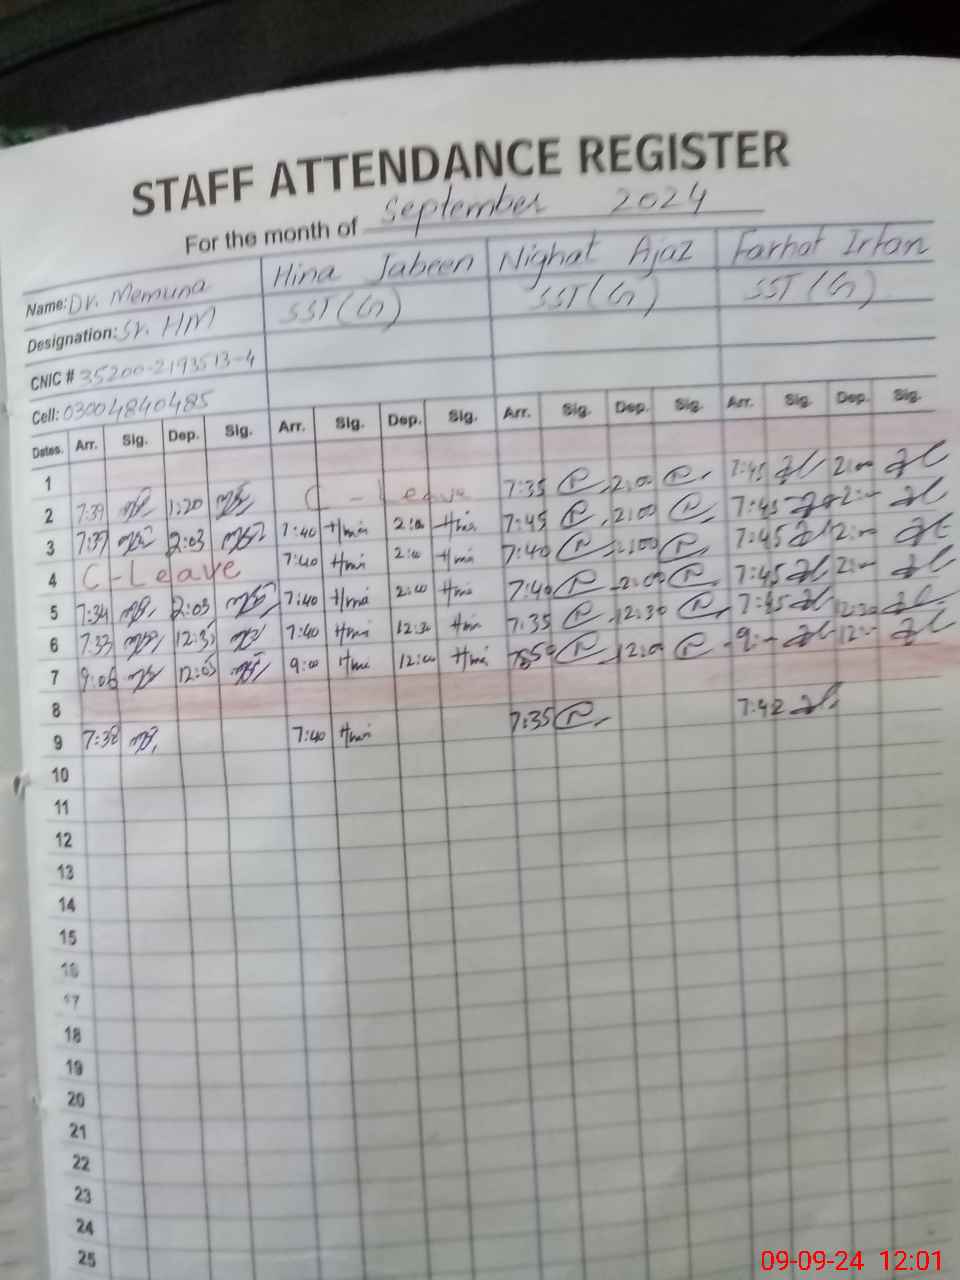 STAFF ATTENDANCE REGISTER
For the month of September 2024
Name: Dr. Memuna Hina Jabeen Nighat Ajaz Farhat Irfan
Designation: Sr. HM SST (G) SST (G) SST (G)
CNIC # 35200-2193513-4
Cell: 03004840485
Dates. Arr. Sig. Dep. Sig. Arr. Sig. Dep. Sig. Arr. Sig. Dep. Sig. Arr. Sig. Dep. Sig.
1
2 7:39 1:20 C-Leave 7:35 2:00 7:45 2:00
3 7:37 2:03 7:40 Hina 2:00 Hina 7:45 2:00 7:45 2:00
4 C-Leave 7:40 Hina 2:00 Hina 7:40 2:00 7:45 2:00
5 7:34 2:03 7:40 Hina 2:00 Hina 7:40 2:00 7:45 2:00
6 7:33 7:40 Hina 12:30 Hina 7:35 12:30 7:45 12:30
7 9:06 12:03 9:00 Hina 12:00 Hina 12:00 9:00 12:00
8
9 7:38 7:40 Hina 7:35 7:42
10
11
12
13
14
15
16
17
18
19
20
21
22
23
24
25
09-09-24 12:01